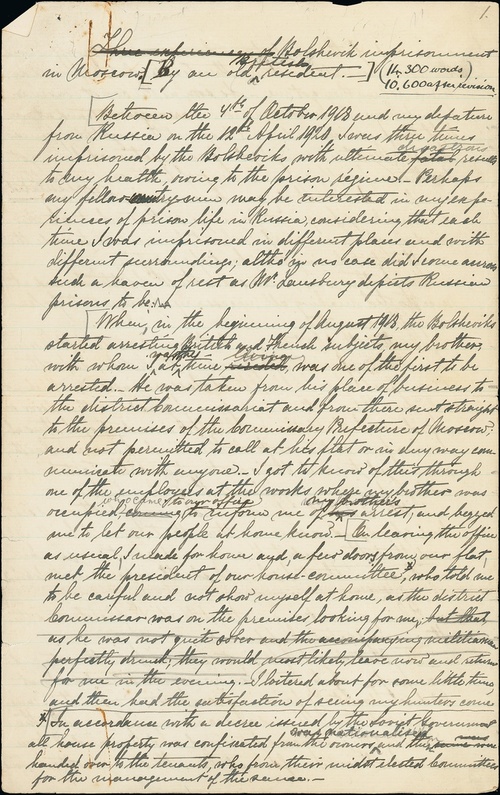 1.
Three experiences of Bolshevik imprisonment
in Moscow. [By an old British resident. —] (11,300 words)
10,600 after revision
[Between the 4th of October 1918 and my departure
from Russia on the 12th April 1920, I was three times
imprisoned by the Bolsheviks with ultimate fatal disastrous results
to my health, owing to the prison regime. Perhaps
my fellow-countrymen may be interested in my expe-
riences of prison life in Russia, considering that each
time I was imprisoned in different places and with
different surroundings; altho' in no case did I come across
such a haven of rest as Mr. Lansbury depicts Russian
prisons to be.
[When, in the beginning of August 1918, the Bolsheviks
started arresting British and French subjects, my brother,
with whom I at the time living, was one of the first to be
arrested. He was taken from his place of business to
the district Commissariat and from there sent straight
to the premises of the Commissary Prefecture of Moscow,
and not permitted to call at his flat or in any way com-
municate with anyone. — I got to know of this through
one of the employees at the works where my brother was
occupied, coming who came to our office to inform me of my brother's arrest, and begged
me to let our people at home know. — [On leaving the office
as usual, I made for home and, a few doors from our flat,
met the president of our house-committee,* who told me
to be careful and not show myself at home, as the district
Commissar was on the premises, looking for me, but that
as he was not quite sober and the accompanying militiaman
perfectly drunk, they would most likely leave now and return
for me in the evening. — I loitered about for some little time
and then had the satisfaction of seeing my hunters come
* [In accordance with a decree issued by the Soviet Government
all house property was confiscated from the owners, was nationalised and the
handed over to the tenants, who from their midst elected Committees
for the management of the same. —